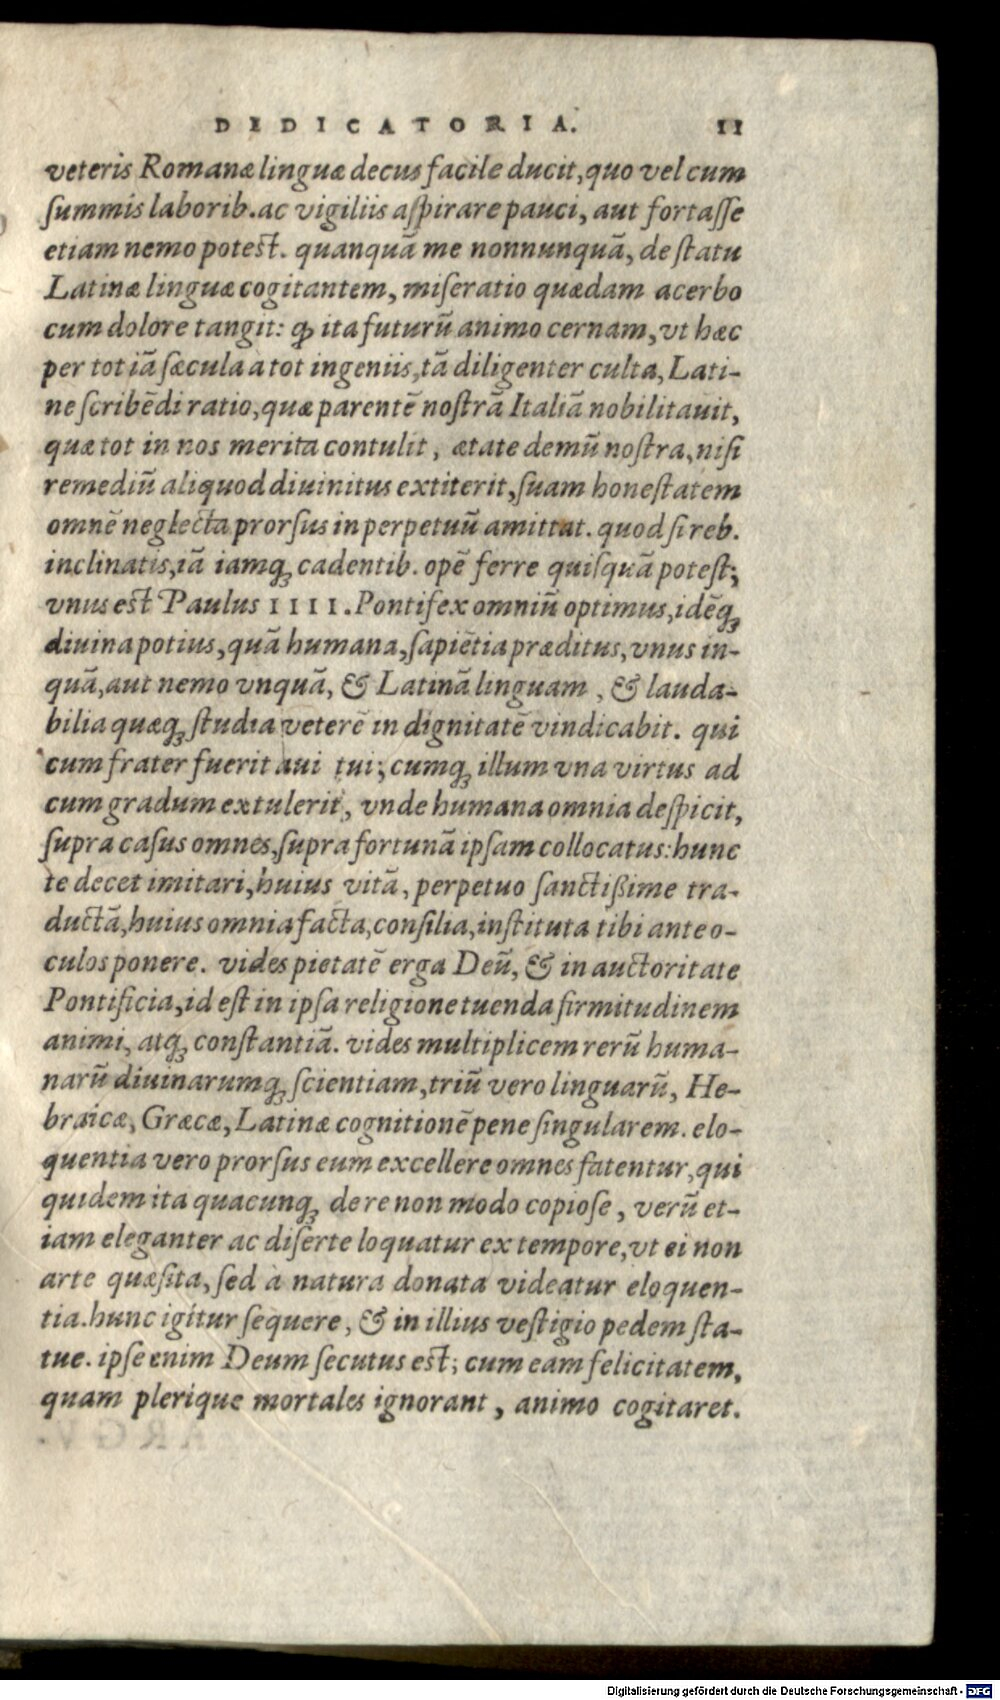 DEDICATORIA. 11
veteris Romanæ linguæ decus facile ducit, quo vel cum
ſummis laborib. ac vigiliis aſpirare pauci, aut fortaſſe
etiam nemo poteſt. quanquā me nonnunquā, de ſtatu
Latinæ linguæ cogitantem, miſeratio quædam acerbo
cum dolore tangit: ꝙ ita futurū animo cernam, vt hæc
per tot iā ſæcula à tot ingeniis, tā diligenter culta, Lati-
ne ſcribēdi ratio, quæ parentē noſtrā Italiā nobilitauit,
quæ tot in nos merita contulit, ætate demū noſtra, niſi
remediū aliquod diuinitus extiterit, ſuam honeſtatem
omnē neglecta prorſus in perpetuū amittat. quod ſi reb.
inclinatis, iā iamq́; cadentib. opē ferre quiſquā poteſt;
vnus eſt Paulus IIII. Pontifex omniū optimus, idēq;
diuina potius, quā humana, ſapiētia præditus, vnus in-
quā, aut nemo vnquā, & Latinā linguam, & lauda-
bilia quæq; ſtudia veterē in dignitatē vindicabit. qui
cum frater fuerit aui tui; cumq; illum vna virtus ad
eum gradum extulerit, vnde humana omnia deſpicit,
ſupra caſus omnes, ſupra fortunā ipſam collocatus: hunc
te decet imitari, huius vitā, perpetuo ſanctißime tra-
ductā, huius omnia facta, conſilia, inſtituta tibi ante o-
culos ponere. vides pietatē erga Deū, & in auctoritate
Pontificia, id eſt in ipſa religione tuenda firmitudinem
animi, atq; conſtantiā. vides multiplicem rerū huma-
narū diuinarumq; ſcientiam, triū vero linguarū, He-
braicæ, Græcæ, Latinæ cognitionē pene ſingularem. elo-
quentia vero prorſus eum excellere omnes fatentur, qui
quidem ita quacunq; de re non modo copioſe, verū et-
iam eleganter ac diſerte loquatur ex tempore, vt ei non
arte quæſita, ſed à natura donata videatur eloquen-
tia. hunc igitur ſequere, & in illius veſtigio pedem ſta-
tue. ipſe enim Deum ſecutus eſt; cum eam felicitatem,
quam plerique mortales ignorant, animo cogitaret.
Digitalisierung gefördert durch die Deutsche Forschungsgemeinschaft - DFG